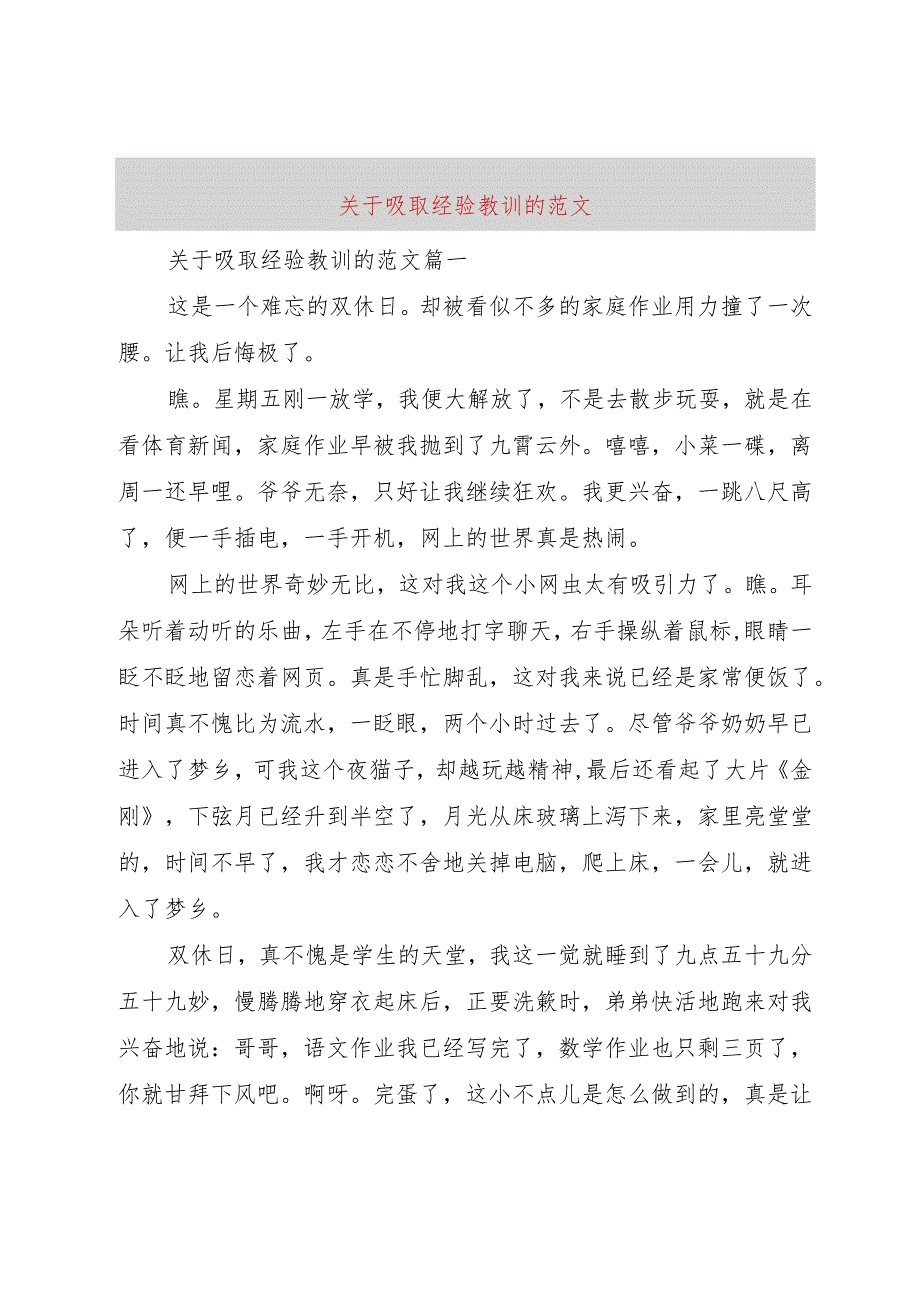 关于吸取经验教训的范文
关于吸取经验教训的范文篇一
这是一个难忘的双休日。却被看似不多的家庭作业用力撞了一次
腰。让我后悔极了。
瞧。星期五刚一放学，我便大解放了，不是去散步玩耍，就是在
看体育新闻，家庭作业早被我抛到了九霄云外。嘻嘻，小菜一碟，离
周一还早哩。爷爷无奈，只好让我继续狂欢。我更兴奋，一跳八尺高
了，便一手插电，一手开机，网上的世界真是热闹。
网上的世界奇妙无比，这对我这个小网虫太有吸引力了。瞧。耳
朵听着动听的乐曲,左手在不停地打字聊天，右手操纵着鼠标,眼睛一
眨不眨地留恋着网页。真是手忙脚乱，这对我来说已经是家常便饭了。
时间真不愧比为流水，一眨眼，两个小时过去了。尽管爷爷奶奶早已
进入了梦乡，可我这个夜猫子，却越玩越精神,最后还看起了大片《金
刚》，下弦月已经升到半空了，月光从床玻璃上泻下来，家里亮堂堂
的，时间不早了，我才恋恋不舍地关掉电脑，爬上床，一会儿，就进
入了梦乡。
双休日，真不愧是学生的天堂，我这一觉就睡到了九点五十九分
五十九妙，慢腾腾地穿衣起床后，正要洗簌时，弟弟快活地跑来对我
兴奋地说：哥哥，语文作业我已经写完了，数学作业也只剩三页了，
你就甘拜下风吧。啊呀。完蛋了，这小不点儿是怎么做到的，真是让